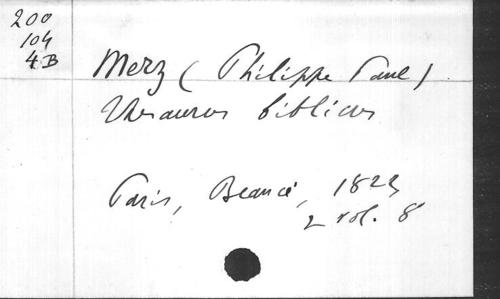 200
104
4B
Merz (Philippe Paul)
Thesaurus biblicus
Paris, Beaucé, 1823
2 vol. 8